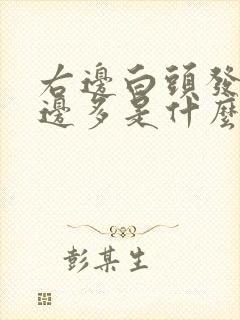 右邊白頭發
邊多是什麼
彭某生